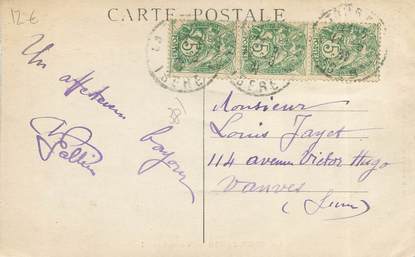 12-€
CARTE-POSTALE
5 5 5
ISERE
ISERE
Un affectueux
bonjour
Monsieur
Louis Jayet
114 avenue Victor Hugo
Vanves
(Seine)